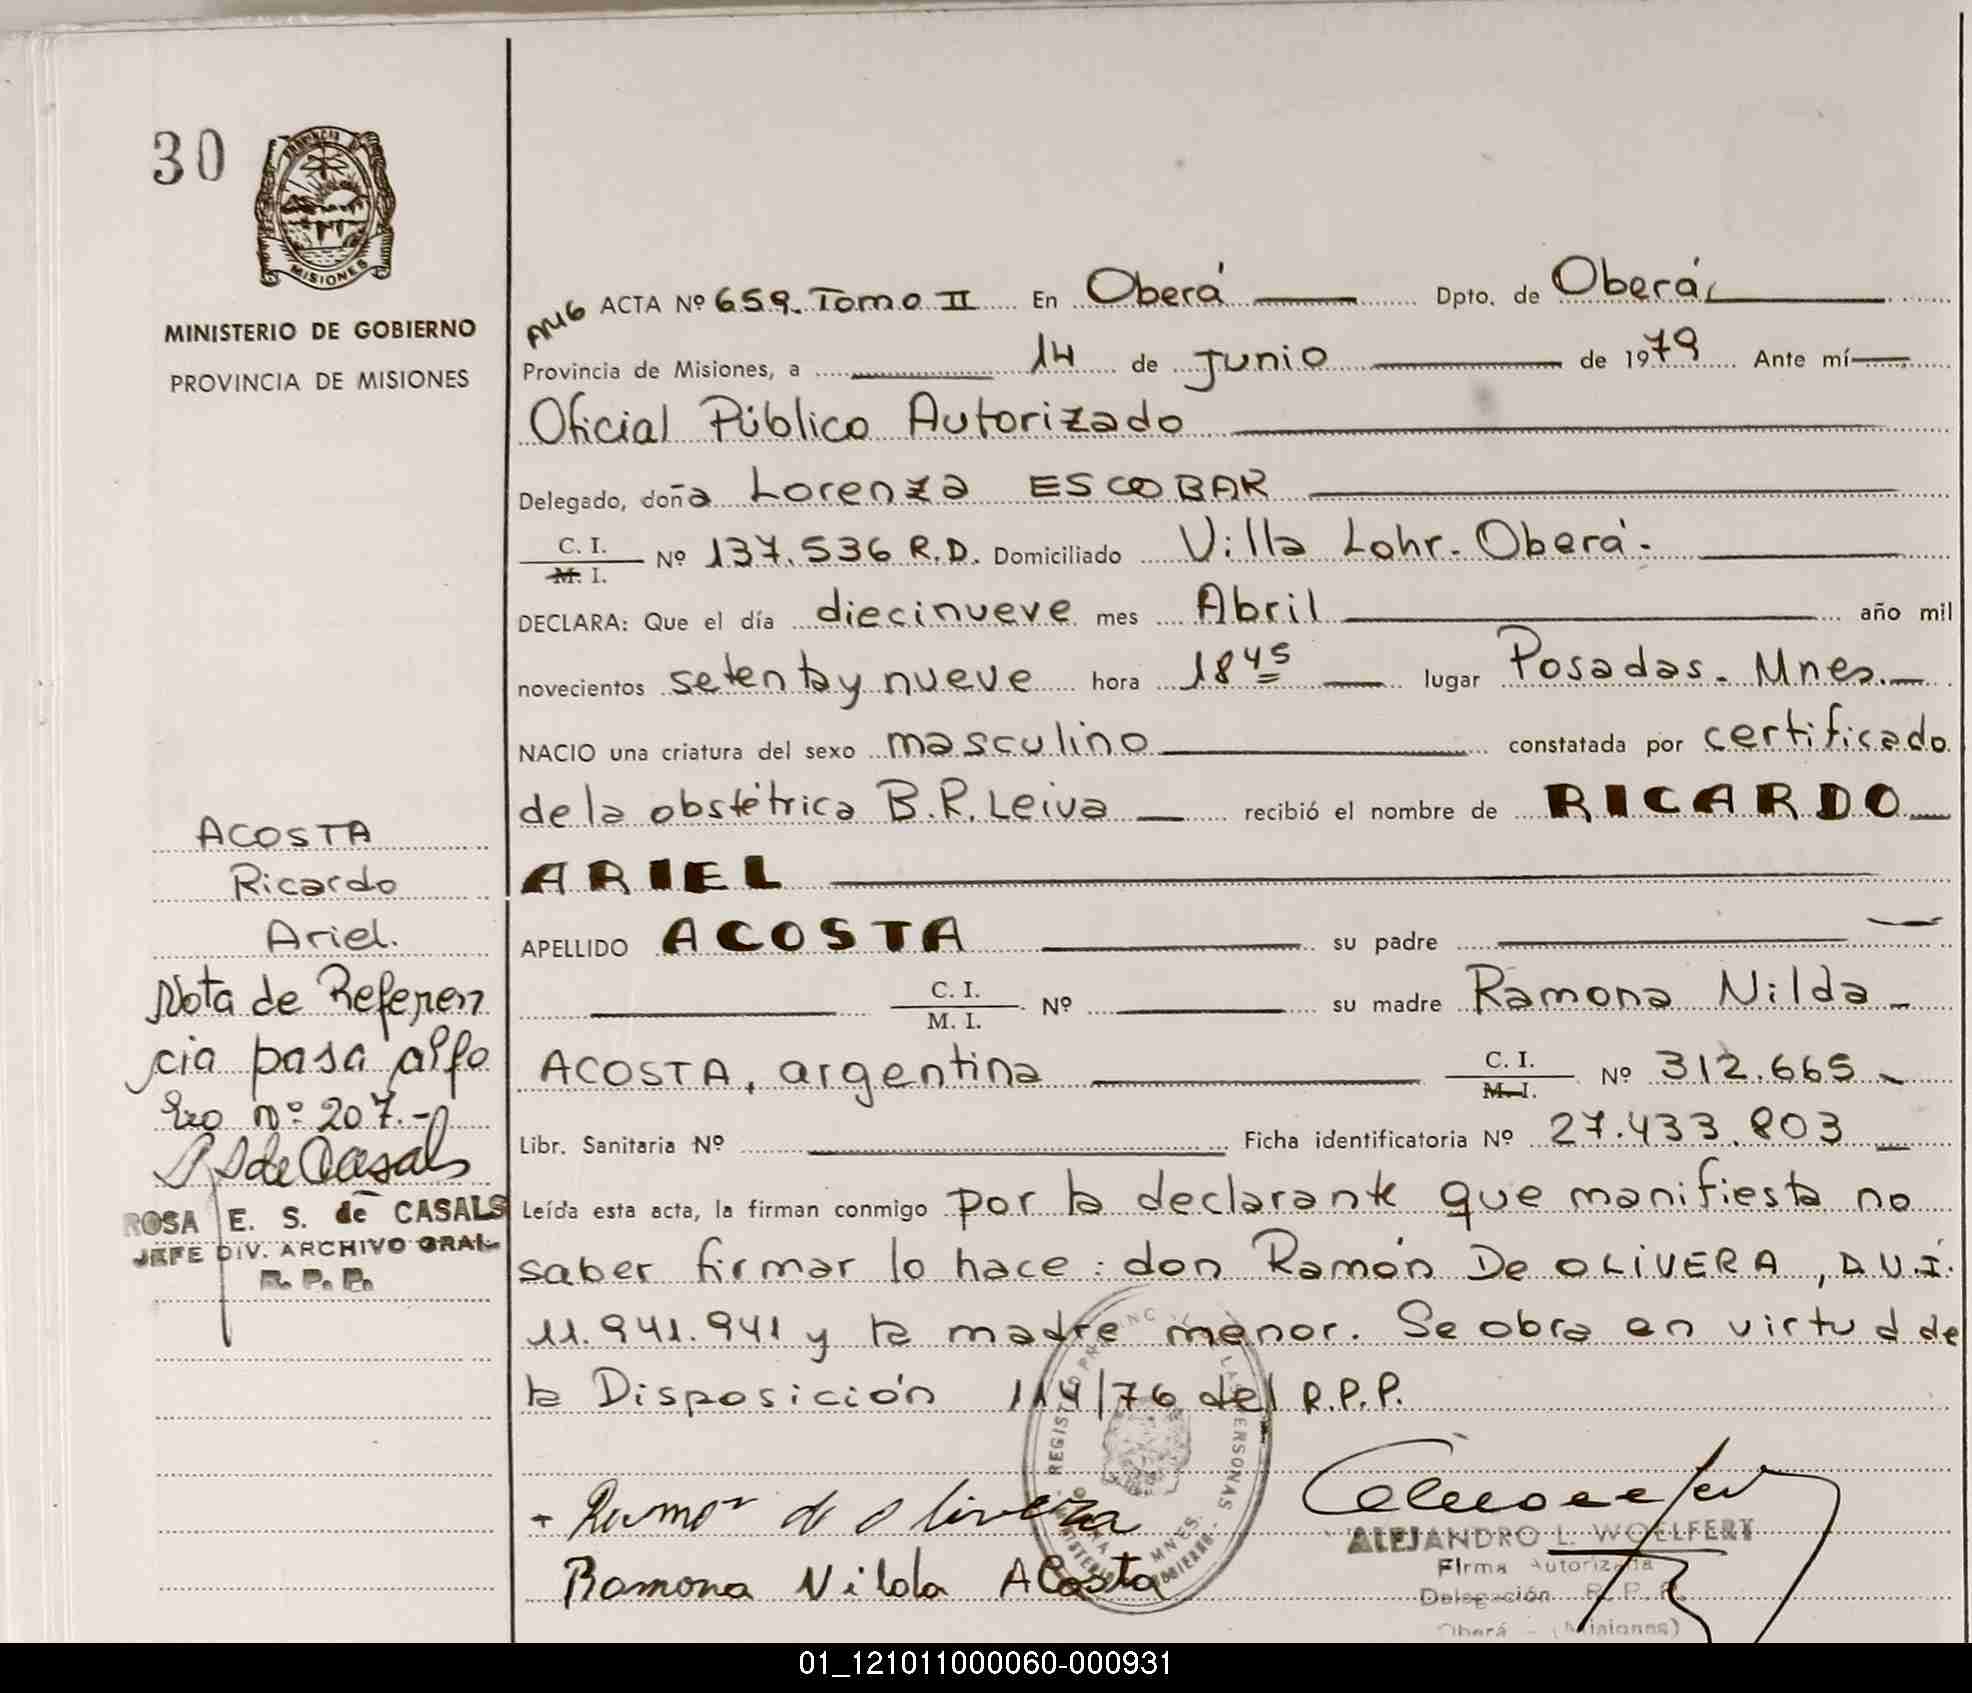 30
PROVINCIA DE
MISIONES
MINISTERIO DE GOBIERNO
PROVINCIA DE MISIONES
ACTA Nº 659. Tomo II En Oberá Dpto. de Oberá,
Provincia de Misiones, a 14 de Junio de 1979 Ante mí
Oficial Público Autorizado
Delegado, doña Lorenza ESCOBAR
C. I.
M. I. Nº 137.536 R.D. Domiciliado Villa Lohr. Oberá.
DECLARA: Que el día diecinueve mes Abril año mil
novecientos setenta y nueve hora 18 45 lugar Posadas. Mnes.
NACIO una criatura del sexo masculino constatada por certificado
de la obstétrica B.R. Leiva recibió el nombre de RICARDO
ARIEL
APELLIDO ACOSTA su padre
C. I.
M. I. Nº su madre Ramona Nilda
ACOSTA, argentina C. I.
M. I. Nº 312.665
Libr. Sanitaria Nº Ficha identificatoria Nº 27.433.803
Leída esta acta, la firman conmigo por la declarante que manifiesta no
saber firmar lo hace: don Ramón De OLIVERA, D.U.I.
11.941.941 y la madre menor. Se obra en virtud de
la Disposición 114/76 del R.P.P.
Ramon de olivera
Ramona Nilda Acosta
ALEJANDRO L. WOELFERT
Firma Autorizada
Delegación R. P. P.
Oberá - (Misiones)
ACOSTA
Ricardo
Ariel.
Nota de Referen
cia pasa al fo
lio nº 207.-
de Casals
ROSA E. S. de CASALS
JEFE DIV. ARCHIVO GRAL
R. P. P.
01_121011000060-000931